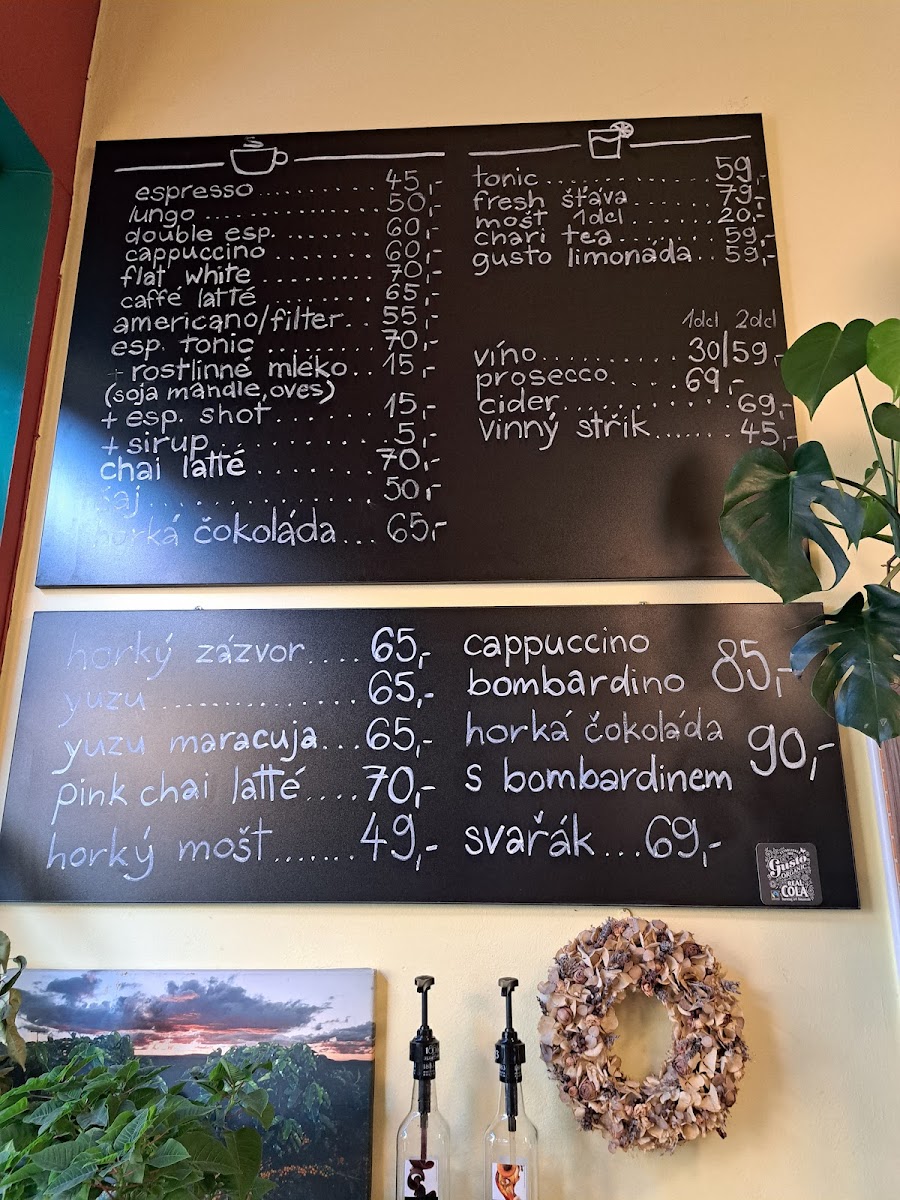 espresso.............. 45,-
lungo................. 50,-
double esp............ 60,-
cappuccino............ 60,-
flat white............ 70,-
caffé latté........... 65,-
americano/filter.. 55,-
esp. tonic............ 70,-
+ rostlinné mléko.. 15,-
(soja mandle, oves)
+ esp. shot........... 15,-
+ sirup............... 5,-
chai latté............ 70,-
čaj................... 50,-
horká čokoláda... 65,-
tonic................. 59,-
fresh šťáva........... 79,-
mošt 1dcl............. 20,-
chari tea............. 59,-
gusto limonáda.. 59,-
1dcl 2dcl
víno............ 30/59,-
prosecco...... 69,-
cider................. 69,-
vinný střik....... 45,-
horký zázvor.... 65,-
yuzu................ 65,-
yuzu maracuja... 65,-
pink chai latté.... 70,-
horký mošt....... 49,-
cappuccino
bombardino 85,-
horká čokoláda
s bombardinem 90,-
svařák...69,-
Gusto
ORGANIC
REAL
COLA